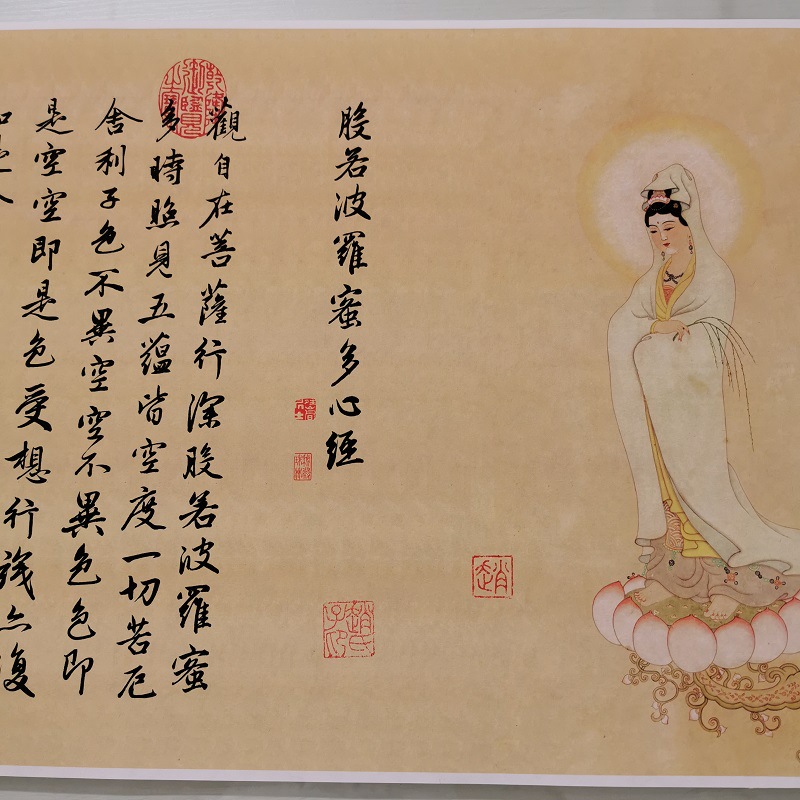 般若波羅蜜多心經
觀自在菩薩行深般若波羅蜜
多時照見五蘊皆空度一切苦厄
舍利子色不異空空不異色色即
是空空即是色受想行識亦復
趙
趙氏子印